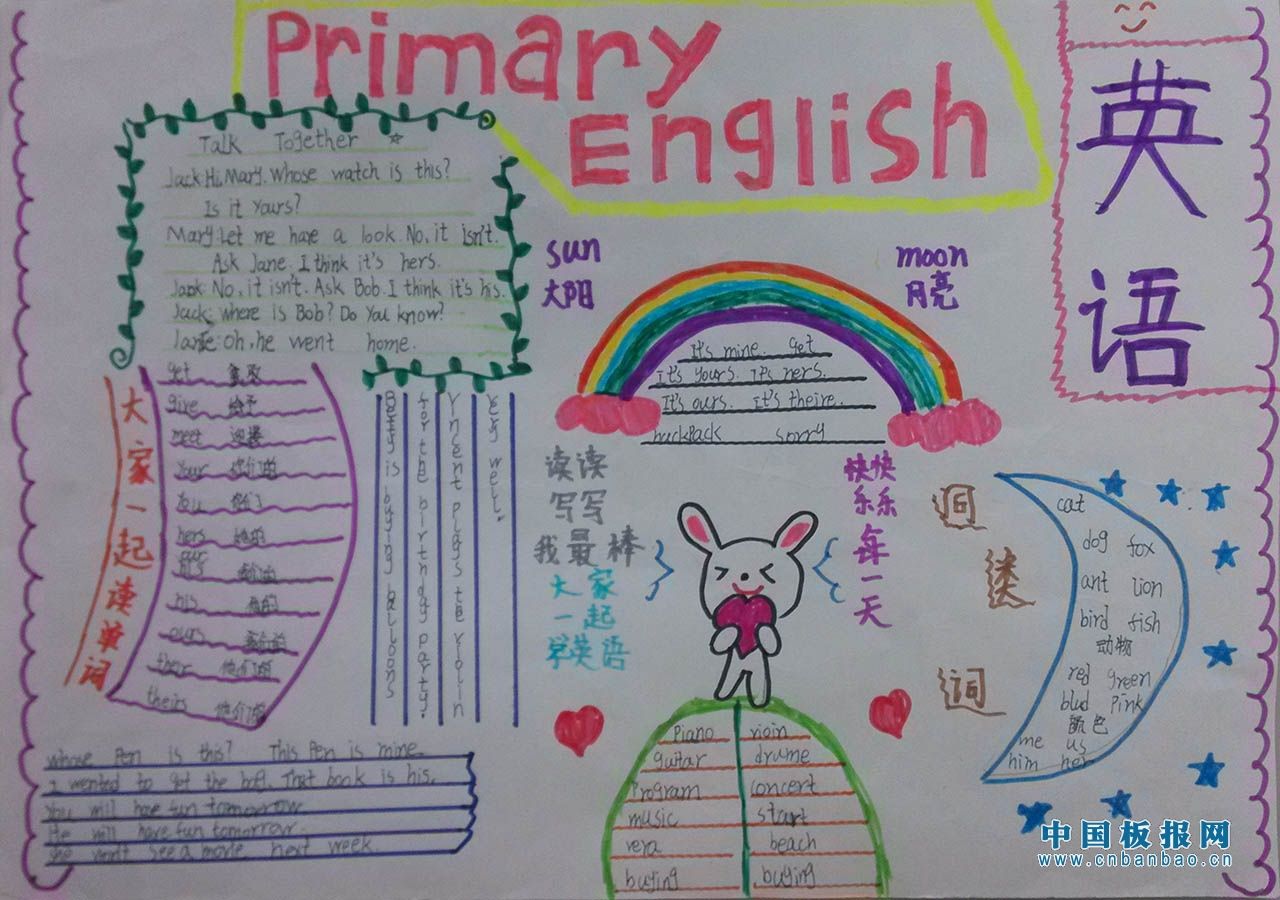 Primary
English
英
语
Talk Together
Jack:Hi,Mary.Whose watch is this?
Is it yours?
Mary:Let me have a look.No,it isn't.
Ask Jane.I think it's hers.
No,it isn't.Ask Bob.I think it's his.
Jack:where is Bob? Do you know?
oh,he went home.
sun
大阳
moon
月亮
It's mine. Get
it's yours. it's hers.
It's ours. it's theire.
backpack sorry
大家一起读单词
get
give 给予
meet 迎接
your 你们的
you 你们
hers 她的
his 他的
ours
their 他们的
theirs 他们的
Betty is buying balloons
for the birthday party.
Vincent plays the violin
very well.
读读
写写
我最棒
大家
一起
学英语
快快
乐乐
每
一
天
词
cat
dog fox
ant lion
bird fish
动物
red green
blud pink
颜色
me us
him her
whose Pen is this? This Pen is mine
I wented to get the That book is his.
You will have fun tomorrow
He will have fun tomorrow.
She won't see a movie next week.
Piano vioin
guitar drume
Program concert
music start
vera beach
buying buying
中国板报网
www.cnbanbao.cn